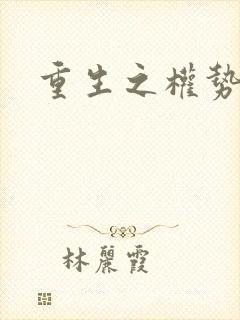 重生之權勢
林麗霞